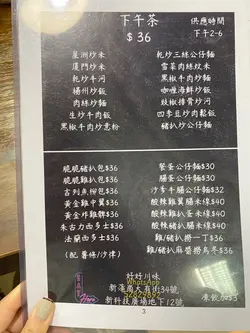 下午茶
$36
供應時間
下午2-6
星洲炒米
廈門炒米
乾炒牛河
揚州炒飯
肉絲炒麵
生炒牛肉飯
黑椒牛肉炒意粉
乾炒三絲公仔麵
雪菜肉絲炆米
黑椒牛肉炒麵
咖喱海鮮炒飯
豉椒排骨炒河
四季豆炒肉鬆飯
豬扒炒公仔麵
脆脆豬扒包$36
脆脆雞扒包$36
吉列魚柳包$36
黃金雞中翼$36
黃金炸雞髀$36
朱古力西多士$36
法蘭西多士$36
(配薯條/沙律)
餐蛋公仔麵$30
腸蛋公仔麵$30
沙爹牛腸公仔麵$32
酸辣雞翼腸米線$40
酸辣腸蛋米線$38
酸辣豬扒蛋米線$40
雞/豬扒撈一丁$36
雞/豬扒麻醬撈烏冬$36
好好川味
WhatsApp
新蒲崗大有街34號
新科技廣場地下12號
凍飲@$3
3